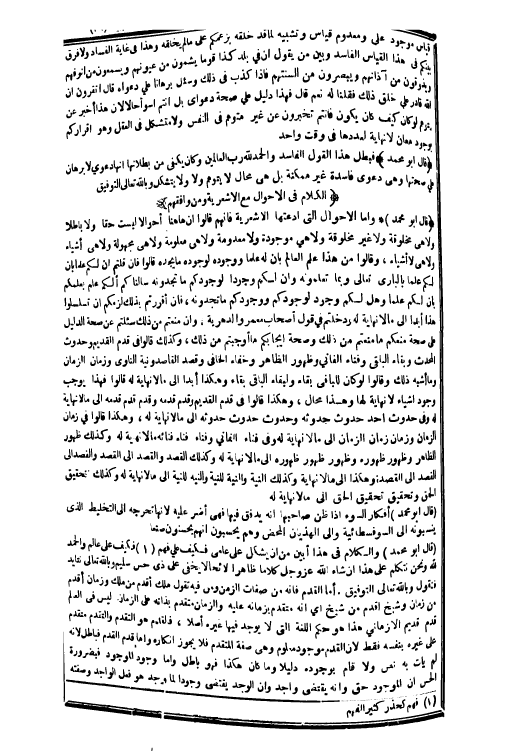 قياس موجود على ومعدوم قياس وتشبيه لما قد خلقه بزعمكم على مالم يخلقه وهذا فى غاية الفساد ولا فرق
بينكم فى هذا القياس الفاسد وبين من يقول ان فى بلد كذا قوما يشمون من عيونهم ويسمعون من انوفهم
ويذوقون من آذانهم ويبصرون من السنتهم فاذا كذب فى ذلك وسئل برهانا على دعواه قال اتقرون ان
الله قادر على خلق ذلك فقلنا له نعم قال فهذا دليل على صحة دعواى بل انتم اسوأ حالا لان هذا أخبر عن
متوهم لو كان كيف كان يكون فانتم تخبرون عن غير متوهم فى النفس ولا متشكل فى العقل وهو اقراركم
بوجود معان لانهاية لعددها فى وقت واحد
﴿قال ابو محمد﴾ فبطل هذا القول الفاسد والحمد لله رب العالمين وكان يكفى من بطلانها انها دعوى لا برهان
على صحتها وهى دعوى فاسدة غير ممكنة بل هى محال لا يتوهم ولا يتشكل وبالله تعالى التوفيق
﴿ الكلام فى الاحوال مع الاشعرية ومن وافقهم ﴾
﴿قال ابو محمد﴾ واما الاحوال التى ادعتها الاشعرية فانهم قالوا ان هاهنا أحوالا ليست حقا ولا باطلا
ولاهى مخلوقة ولا غير مخلوقة ولاهى موجودة ولا معدومة ولاهى معلومة ولاهى مجهولة ولاهى أشياء
ولاهى لا أشياء ، وقالوا من هذا علم العالم بان له علما ووجوده لوجوده مايجده قالوا فان قلتم ان لكم علما بان
لكم علما بالبارى تعالى وبما تعلمونه وان لكم وجودا لوجودكم ماتجدونه سألناكم ألكم علم بعلمكم
بان لكم علما وهل لكم وجود لوجودكم ووجودكم ماتجدونه ، فان أقررتم بذلك لزمكم ان تسلسلوا
هذا أبدا الى مالانهاية له ودخلتم فى قول أصحاب معمر والدهرية ، وان منعتم من ذلك سئلتم عن صحة الدليل
على صحة منعكم مامنعتم من ذلك وصحة ايجابكم ماأوجبتم من ذلك ، وكذلك قالوا فى قدم القديم وحدوث
المحدث وبقاء الباقى وفناء الفانى وظهور الظاهر وخفاء الخافى وقصد القاصد ونية الناوى وزمان الزمان
وما أشبه ذلك وقالوا لو كان للباقى بقاء ولبقاء الباقى بقاء وهكذا أبدا الى مالانهاية له قالوا فهذا يوجب
وجود اشياء لانهاية لها وهذا محال ، وهكذا قالوا فى قدم القديم وقدم قدمه وقدم قدم قدمه الى مالانهاية
له وفى حدوث احد حدوث حدوثه وحدوث حدوث حدوثه الى مالانهاية له ، وهكذا قالوا فى زمان
الزمان وزمان زمان الزمان الى مالانهاية له وفى فناء الفانى وفناء فناء فنائه الى مالانهاية له وكذلك ظهور
الظاهر وظهور ظهوره وظهور ظهور ظهوره الى مالانهاية له وكذلك القصد والقصد الى القصد والقصد الى
القصد الى القصد وهكذا الى مالانهاية وكذلك النية والنية للنية والنية للنية للنية الى مالانهاية له وكذلك تحقيق
الحق وتحقيق تحقيق الحق الى مالانهاية له
(قال ابو محمد) أفكار السوء اذا ظن صاحبها انه يدقق فيها فهى أضر عليه لانها تخرجه الى التخليط الذى
ينسبونه الى السوفسطائية والى الهذيان المحض وهم يحسبون انهم يحسنون صنعا
(قال ابو محمد) والكلام فى هذا أبين من ان يشكل على عامى فكيف على فهم (١) فكيف على عالم والحمد
لله ونحن نتكلم على هذا ان شاء الله عز وجل كلاما ظاهرا لائحا لا يخفى على ذى حس سليم وبالله تعالى نتأيد
فنقول وبالله تعالى التوفيق . أما القدم فانه من صفات الزمن ومن فيه تقول ملك أقدم من ملك وزمان أقدم
من زمان وشيخ اقدم من شيخ أى انه متقدم بزمانه عليه والزمان متقدم بذاته على الزمان ليس فى العالم
قدم قديم الا زمانى هذا هو حكم اللغة التى لا يوجد فيها غيره أصلا ، فالقدم هو التقدم والتقدم متقدم
على غيره بنفسه فقط لان القدم موجود معلوم وهى صفة المتقدم فلا يجوز انكاره واما قدم القدم فباطل لانه
لم يات به نص ولا قام بوجوده دليل وما كان هكذا فهو باطل واما وجود الموجود فبضرورة
الحس ان الموجود حق وانه يقتضى واجد وان الوجد يقتضى وجودا لما وجد هو فعل الواجد وصفته
(١) فهم كحذر كثير الفهم